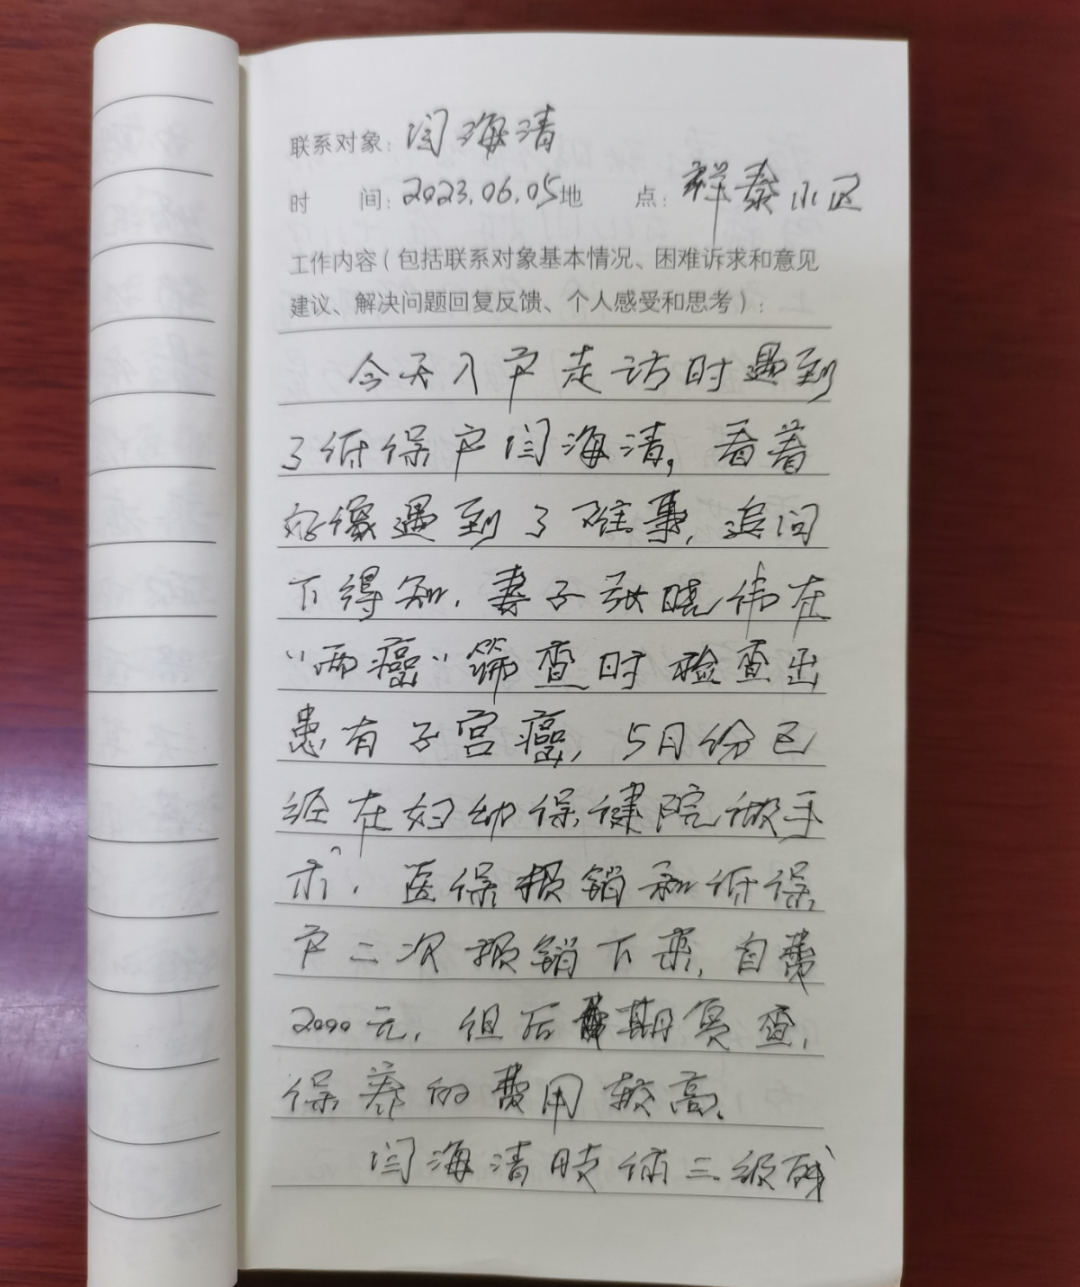 联系对象：闫海清
时 间：2023.06.05地 点：祥泰小区
工作内容（包括联系对象基本情况、困难诉求和意见
建议、解决问题回复反馈、个人感受和思考）：
今天入户走访时遇到
了低保户闫海清，看着
好像遇到了难事，追问
下得知，妻子张晓伟在
“两癌”筛查时检查出
患有子宫癌，5月份已
经在妇幼保健院做手
术，医保损销和低保
户二次损销下来，自费
2000元，但后期复查，
保养的费用较高。
闫海清肢体三级残